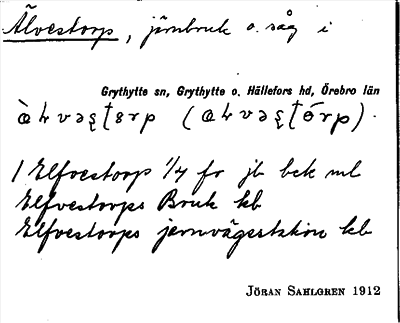 Älvestorp, järnbruk o. såg i
Grythytte sn, Grythytte o. Hällefors hd, Örebro län
1 Elfvestorp 1/4 fr jb bek ml
Elfvestorps Bruk kb
Elfvestorps jernvägsstation kb
JÖRAN SAHLGREN 1912